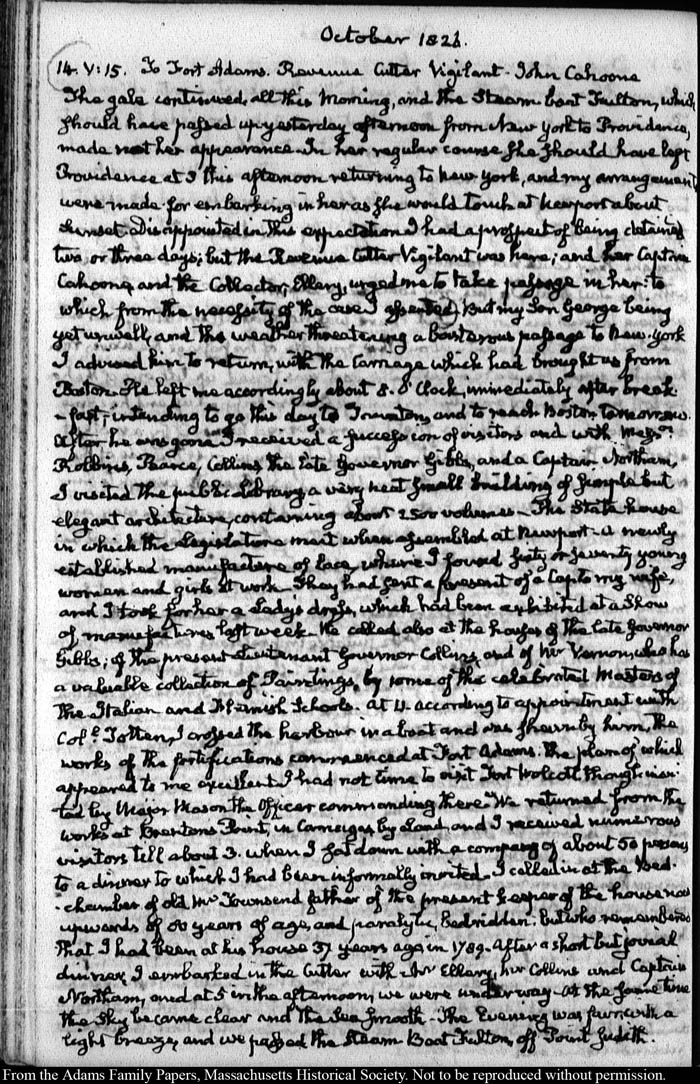 October 1826.
14. V:15. To Fort Adams. Revenue Cutter Vigilant - John Cahoone
The gale continued, all this Morning, and the Steam boat Fulton, which
should have passed up yesterday afternoon from New York to Providence
made not her appearance. In her regular course she should have left
Providence at 1 this afternoon returning to New York, and my arrangements
were made for embarking in her as she would touch at Newport about
sunset. Disappointed in this expectation I had a prospect of being detained
two or three days; but the Revenue Cutter Vigilant was here; and her Captain
Cahoone, and the Collector, Ellery, urged me to take passage in her: to
which from the necessity of the case I assented. But my Son George being
yet unwell, and the weather threatening a boisterous passage to New-York
I advised him to return, with the Carriage which had brought us from
Boston. He left me accordingly about 8. O'Clock, immediately after break
-fast, intending to go this day to Taunton, and to reach Boston tomorrow.
After he was gone I received a succession of visitors and with Messrs.
Robbins, Pearce, Collins, the late Governor Gibbs, and a Captain Northam,
I visited the public Library a very neat small building of simple but
elegant architecture, containing about 2500 volumes - The State house
in which the Legislature meet when assembled at Newport - a newly
established manufacture of lace, where I found sixty or seventy young
women and girls at work. They had sent a present of a Cap to my wife,
and I took for her a Ladys dress, which had been exhibited at a show
of manufactures last week. We called also at the houses of the late Governor
Gibbs; of the present Lieutenant Governor Collins, and of Mr Vernon, who has
a valuable collection of Paintings, by some of the celebrated Masters of
the Italian and Flemish Schools. At 11. according to appointment with
Coll. Totten, I crossed the harbour in a boat and was shewn by him, the
works of the fortifications commenced at Fort Adams: the plan of which
appeared to me excellent. I had not time to visit Fort Wolcott though invi-
ted by Major Mason the Officer commanding there. We returned from the
works at Brentons Point, in Carriages by land, and I received numerous
visitors till about 3. when I sat down with a company of about 50 persons
to a dinner to which I had been informally invited. I called in at the Bed-
-chamber of old Mr Townsend father of the present keeper of the house now
upwards of 80 years of age, and paralytic, bedridden: but who remembered
that I had been at his house 37 years ago in 1789. After a short but jovial
dinner, I embarked in the Cutter with Mr Ellery, Mr Collins and Captain
Northam, and at 5 in the afternoon, we were under way - at the same time
the Sky became clear and the Sea smooth. The Evening was fair with a
light breeze, and we passed the Steam Boat Fulton, off Point Judith.
From the Adams Family Papers, Massachusetts Historical Society. Not to be reproduced without permission.